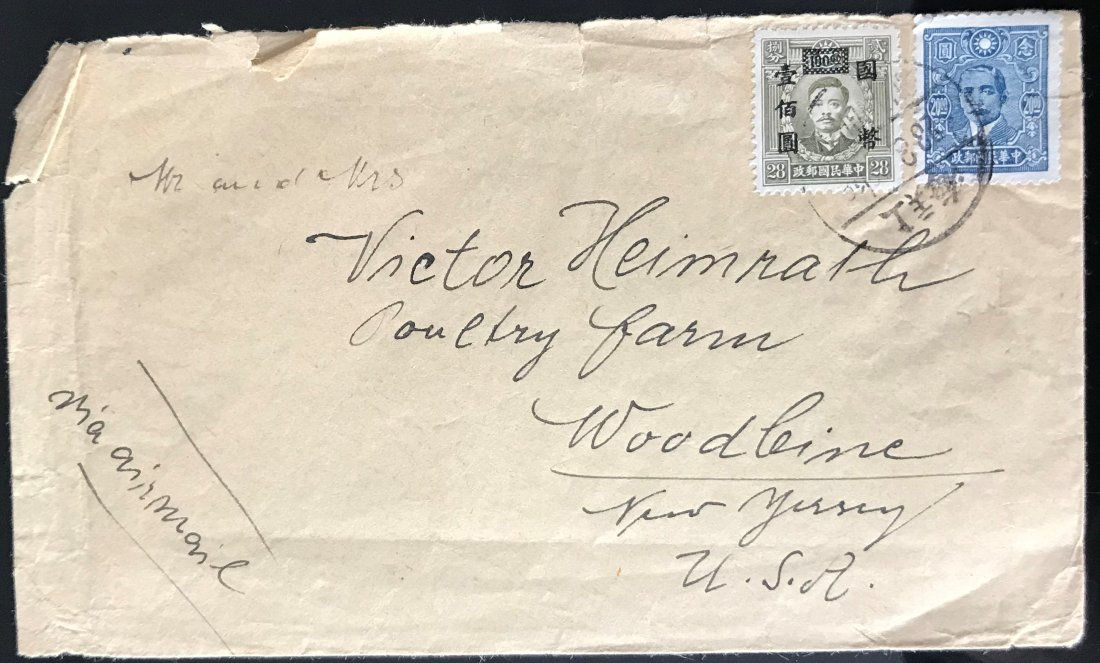 捌分 貳
100.00
國幣
壹佰圓
28 政郵國民華中 28
圓 念
20.00 20.00
政郵國民華中
海上
Mr and Mrs
Victor Heimrath
Poultry farm
Woodbine
New Yersey
U.S.A.
via airmail